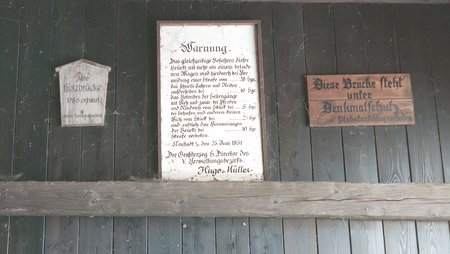 Alte
Holzbrücke
1786 erbaut
Warnung.
Das gleichzeitige Befahren dieser
Brücke mit mehr als einem belade-
nen Wagen wird hierdurch bei Ver-
meidung einer Strafe von 30 Sgr.
das schnelle Fahren und Reiten
auf derselben bei 10 Sgr.
das Betreten der Seitengänge
mit Vieh und zwar bei Pferden
und Rindvieh vom Stück bei 5 Sgr.
bei Schafen und anderem kleinen
Vieh vom Stück bei 2 Sgr.
und endlich das Verunreinigen
der Brücke bei 10 Sgr.
Strafe verboten.
Neustadt, d. 25. Juni 1851
Der Großherzog. S. Director des
V. Verwaltungsbezirks
Hugo Müller
Diese Brücke steht
unter
Denkmalschutz
Plakatanschlag verboten